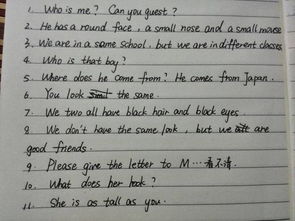 1. Who is me? Can you guest?
2. He has a round face, a small nose and a small mouse
3. We are in a same school, but we are in different classes
4. Who is that boy?
5. Where does he come from? He comes from Japan.
6. You look the same.
7. We two all have black hair and black eyes.
8. We don't have the same look, but we are
good friends.
9. Please give the letter to M…看不清.
10. What does her look?
11. She is as tall as you.